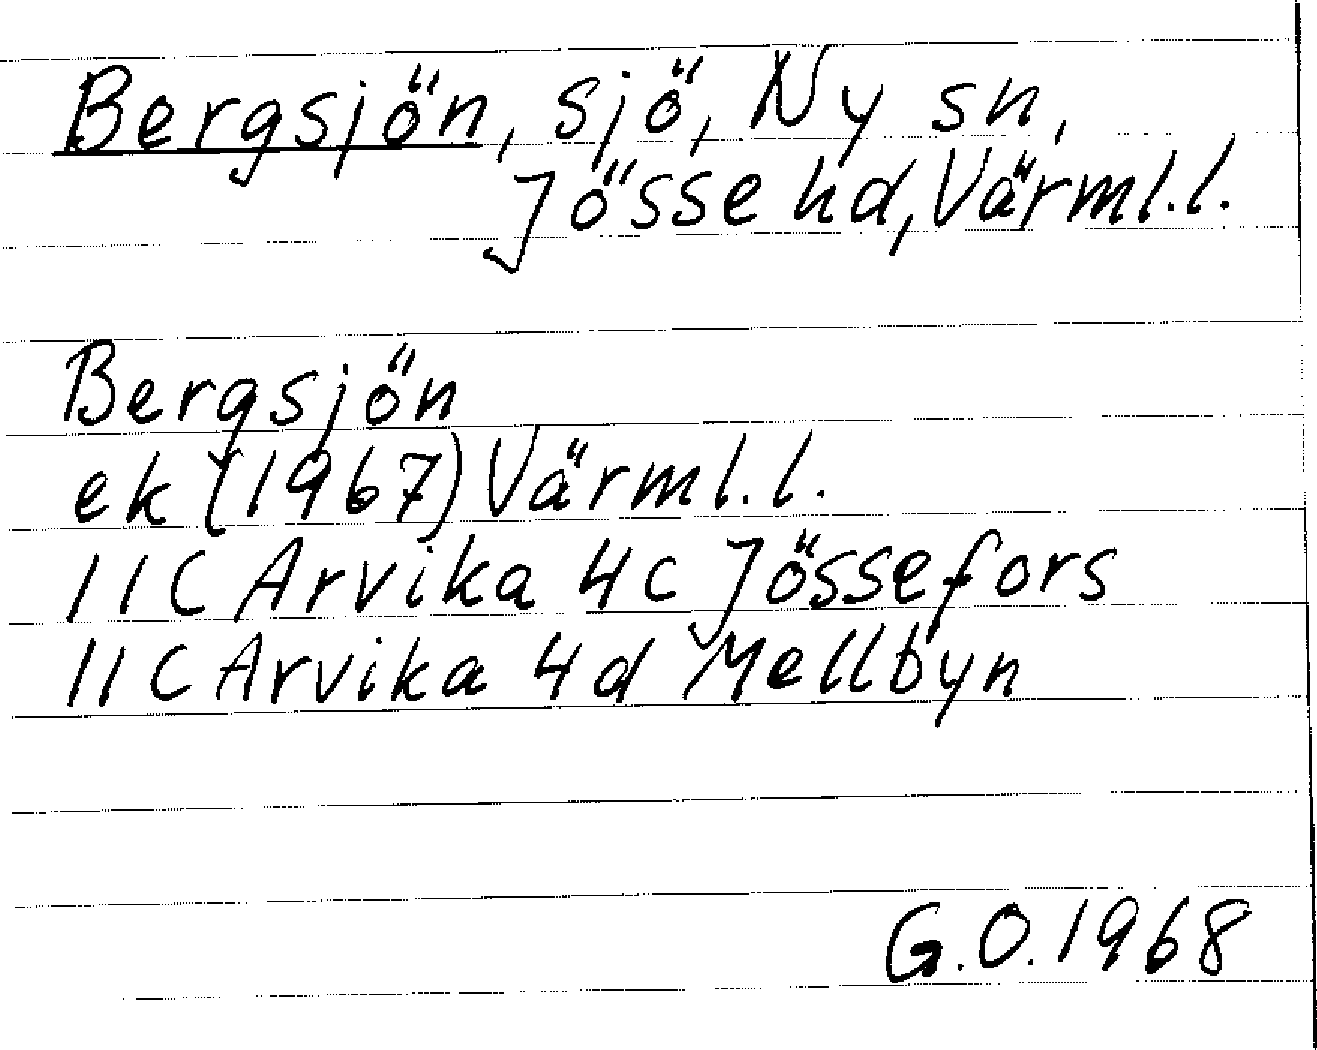 Bergsjön, sjö, Ny sn,
Jösse hd, Värml.l.
Bergsjön
ek (1967) Värml.l.
11C Arvika 4c Jössefors
11C Arvika 4d Mellbyn
G.O. 1968